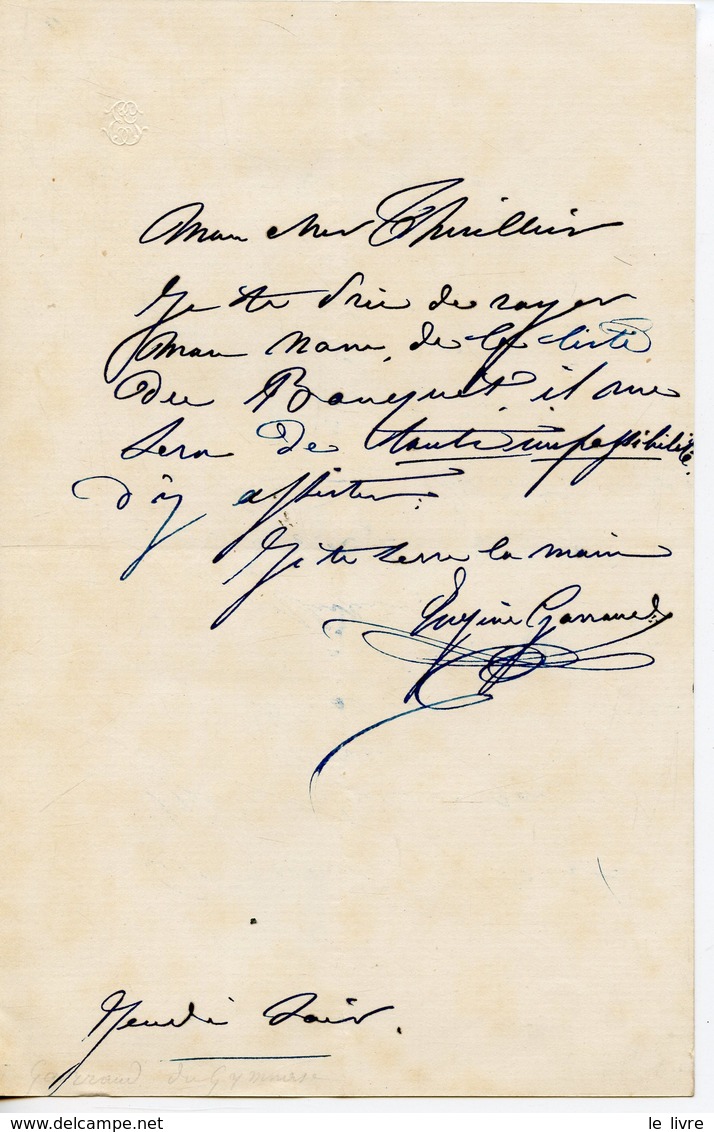 Mon cher Thuillier
Je te prie de rayer
mon nom, de la liste
du Banquet, il me
sera de toute impossibilité
d'y assister.
Je te serre la main
Eugène Garraud
Jeudi soir.
Garraud du Gymnase
www.delcampe.net
le livre